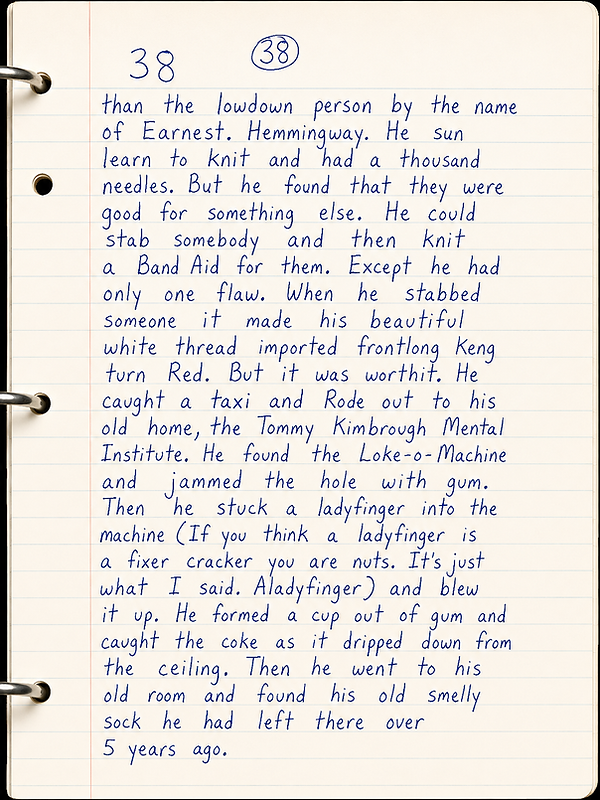 38 38
than the lowdown person by the name
of Earnest. Hemmingway. He sun
learn to knit and had a thousand
needles. But he found that they were
good for something else. He could
stab somebody and then knit
a Band Aid for them. Except he had
only one flaw. When he stabbed
someone it made his beautiful
white thread imported frontlong Keng
turn Red. But it was worthit. He
caught a taxi and Rode out to his
old home, the Tommy Kimbrough Mental
Institute. He found the Loke-o-Machine
and jammed the hole with gum.
Then he stuck a ladyfinger into the
machine (If you think a ladyfinger is
a fixer cracker you are nuts. It's just
what I said. Aladyfinger) and blew
it up. He formed a cup out of gum and
caught the coke as it dripped down from
the ceiling. Then he went to his
old room and found his old smelly
sock he had left there over
5 years ago.